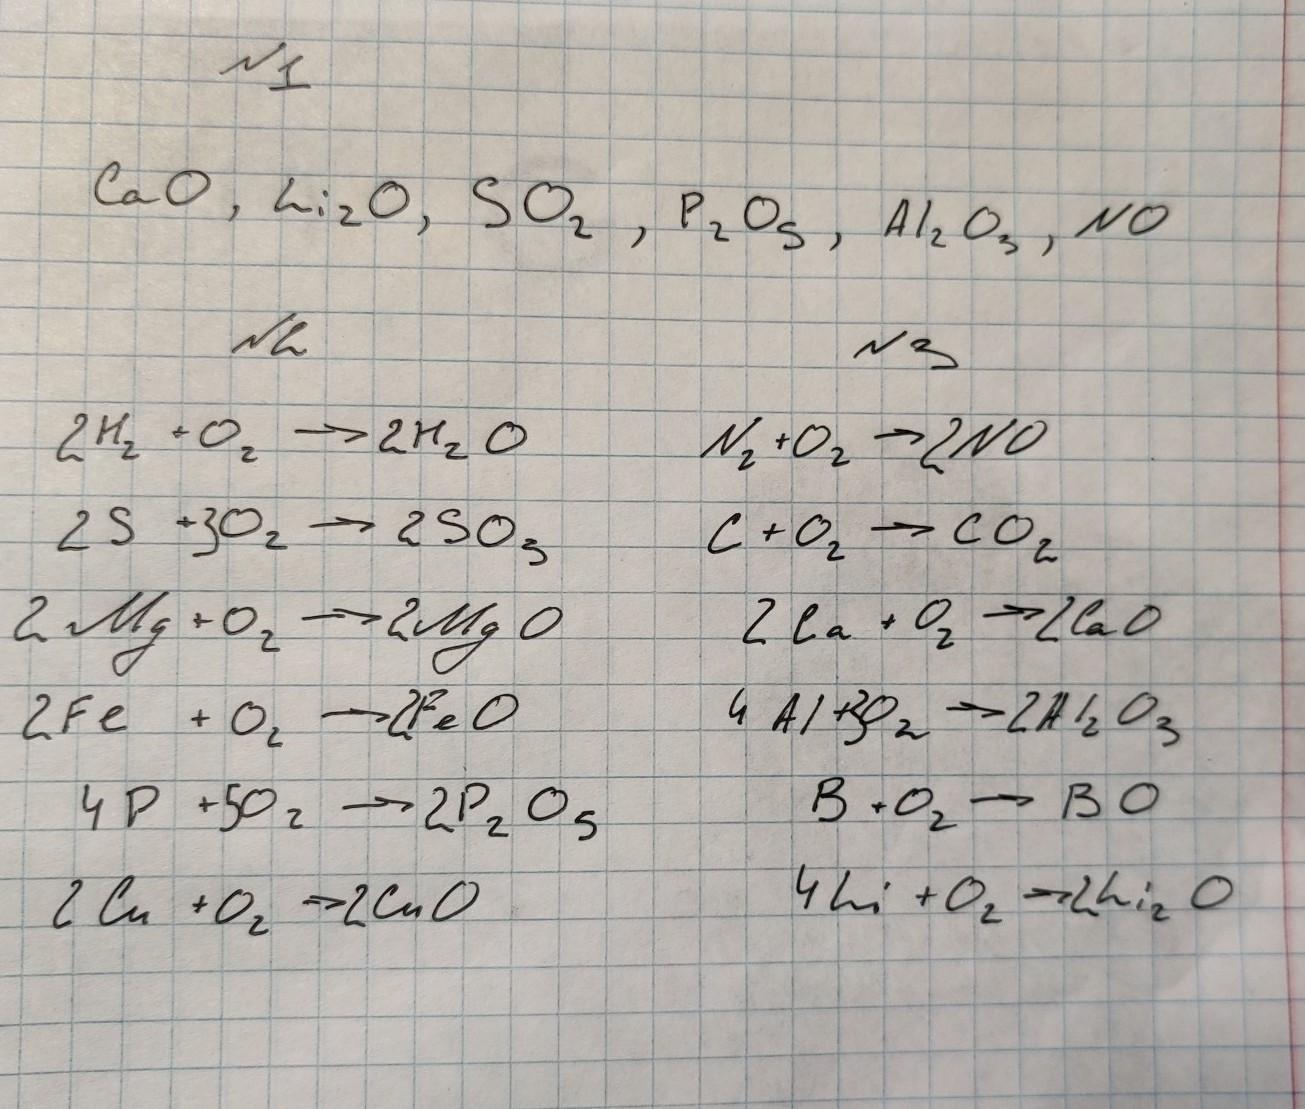 N1
CaO, Li₂O, SO₂, P₂O₅, Al₂O₃, NO
N2
2H₂ + O₂ → 2H₂O
2S + 3O₂ → 2SO₃
2Mg + O₂ → 2MgO
2Fe + O₂ → 2FeO
4P + 5O₂ → 2P₂O₅
2Cu + O₂ → 2CuO
N3
N₂ + O₂ → 2NO
C + O₂ → CO₂
2Ca + O₂ → 2CaO
4Al + 3O₂ → 2Al₂O₃
B + O₂ → BO
4Li + O₂ → 2Li₂O